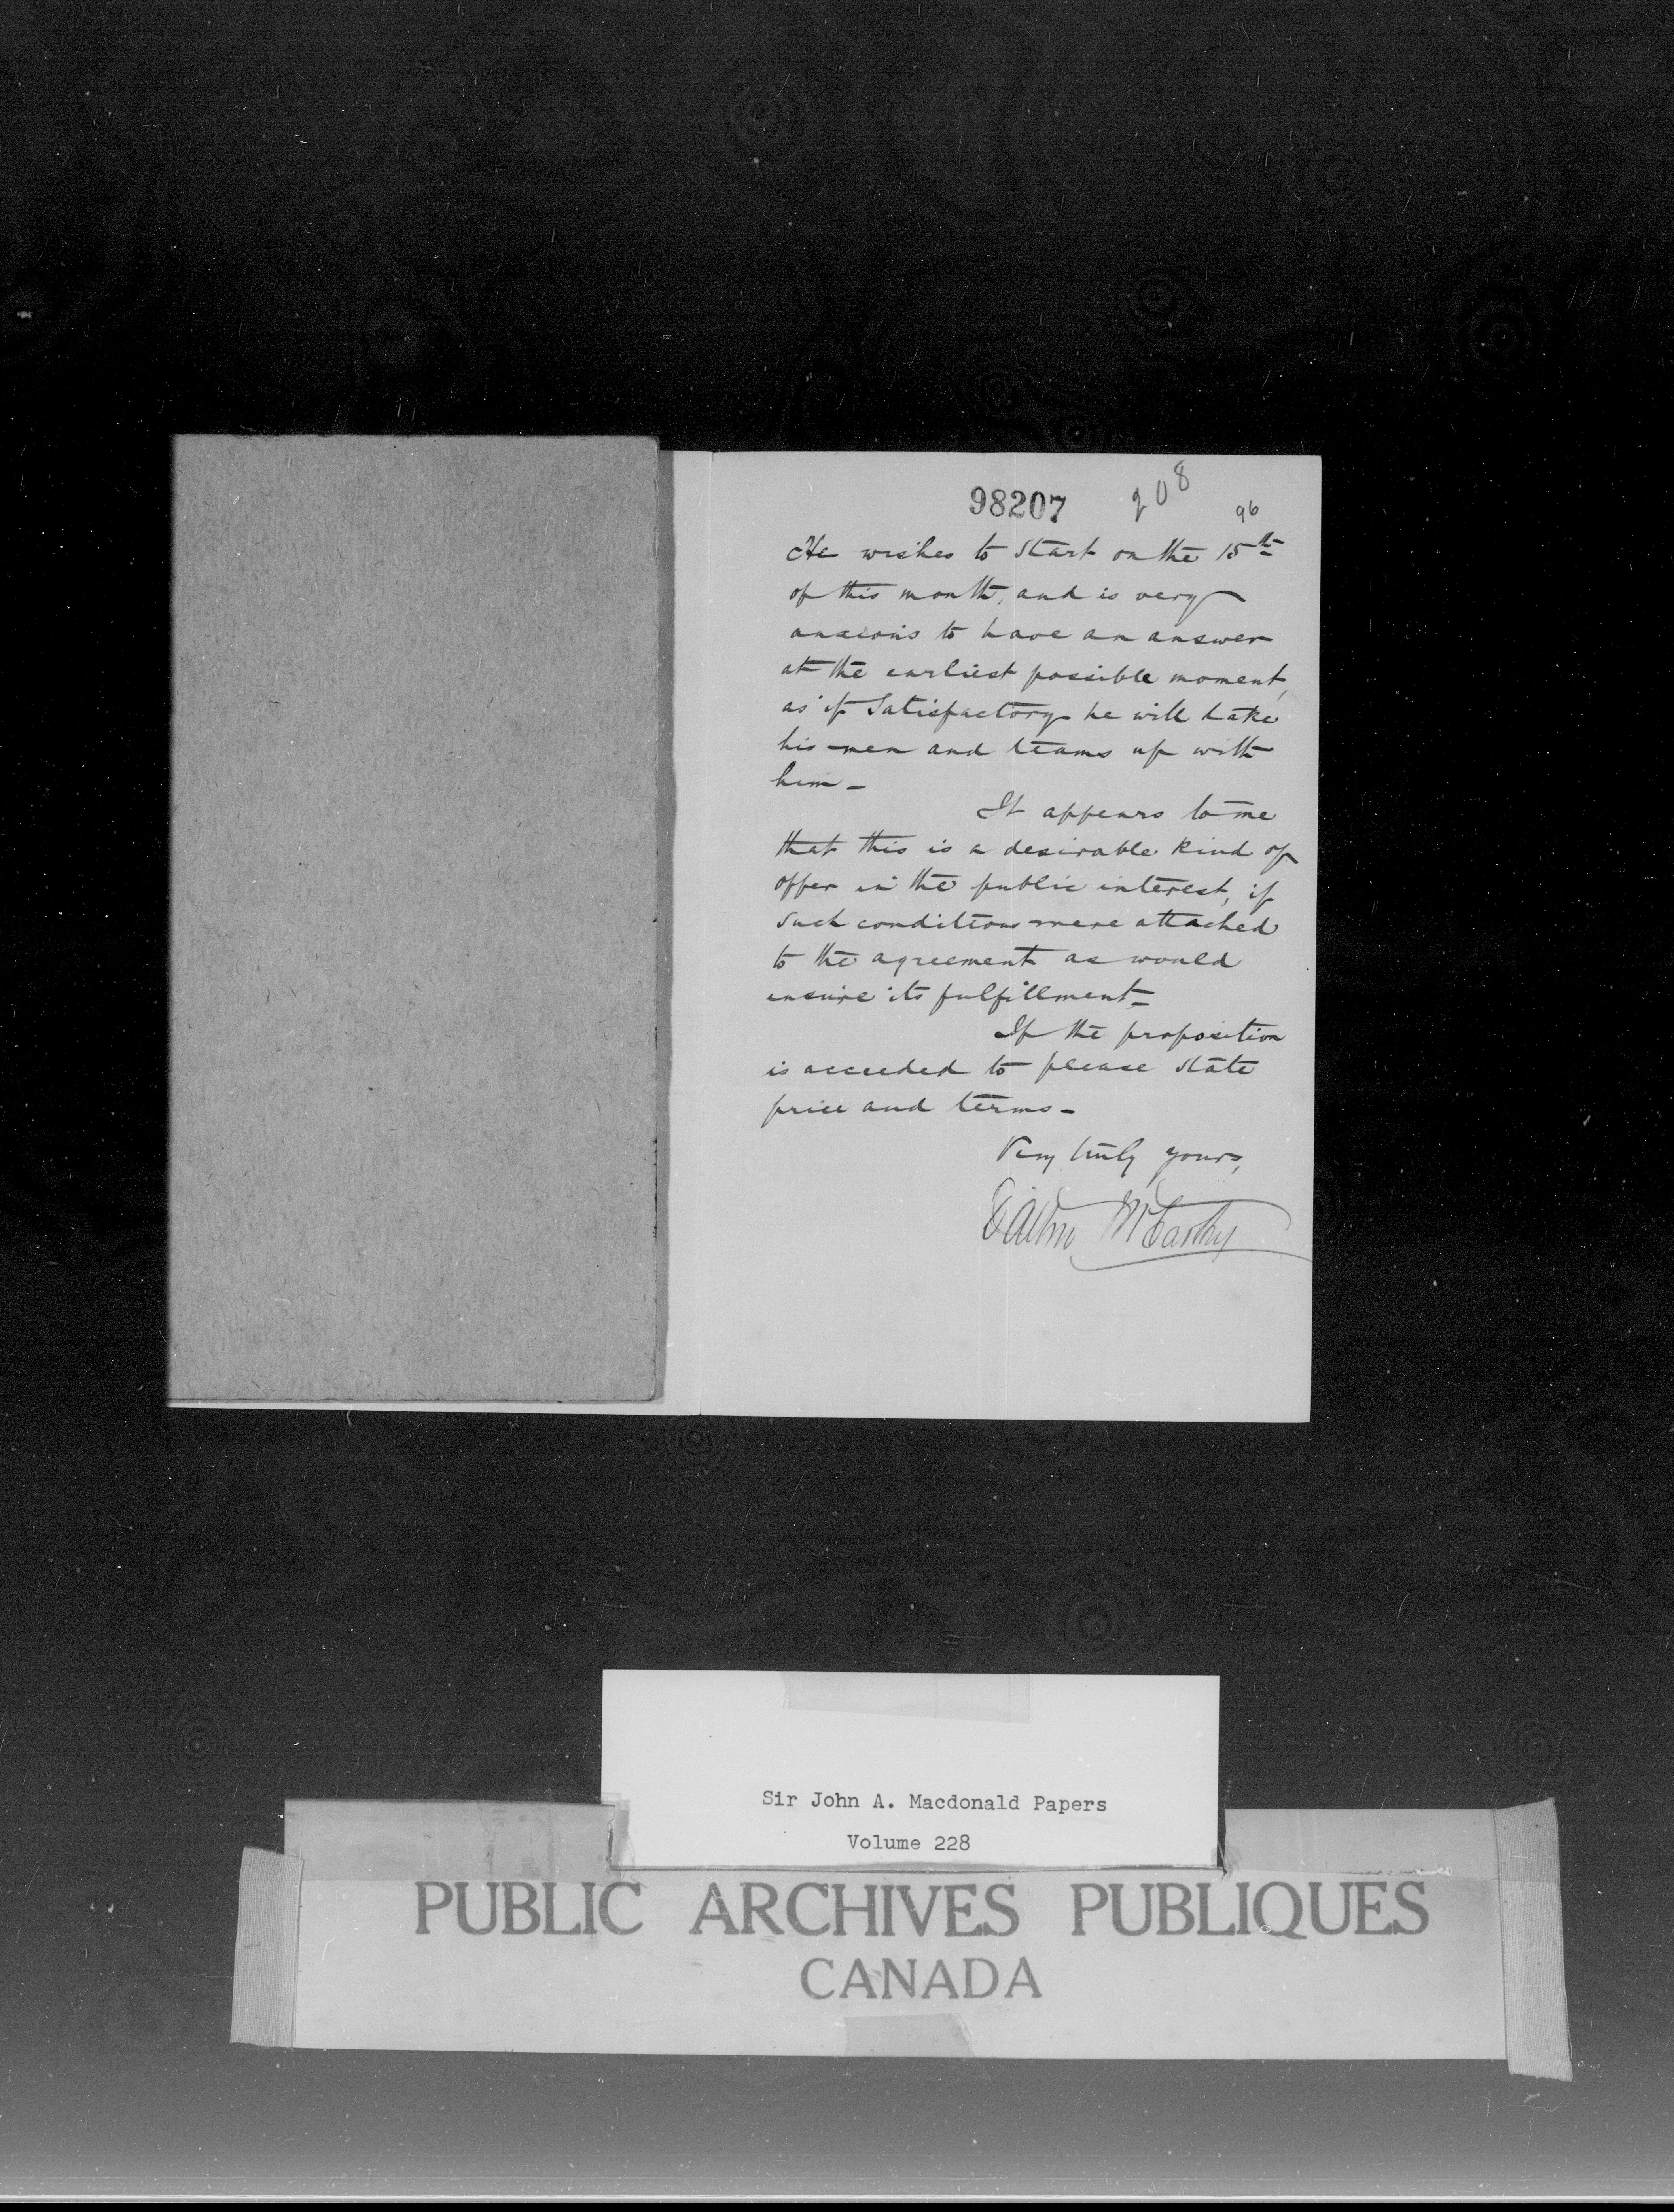 98207 208
96
He wishes to start on the 15th
of this month, and is very
anxious to have an answer
at the earliest possible moment,
as if Satisfactory he will take
his men and teams up with
him -
It appears to me
that this is a desirable kind of
offer in the public interest, if
such conditions were attached
to the agreement as would
ensure its fulfillment -
If the proposition
is acceeded to please state
price and terms -
Very truly yours,
Dalton McCarthy
Sir John A. Macdonald Papers
Volume 228
PUBLIC ARCHIVES PUBLIQUES
CANADA